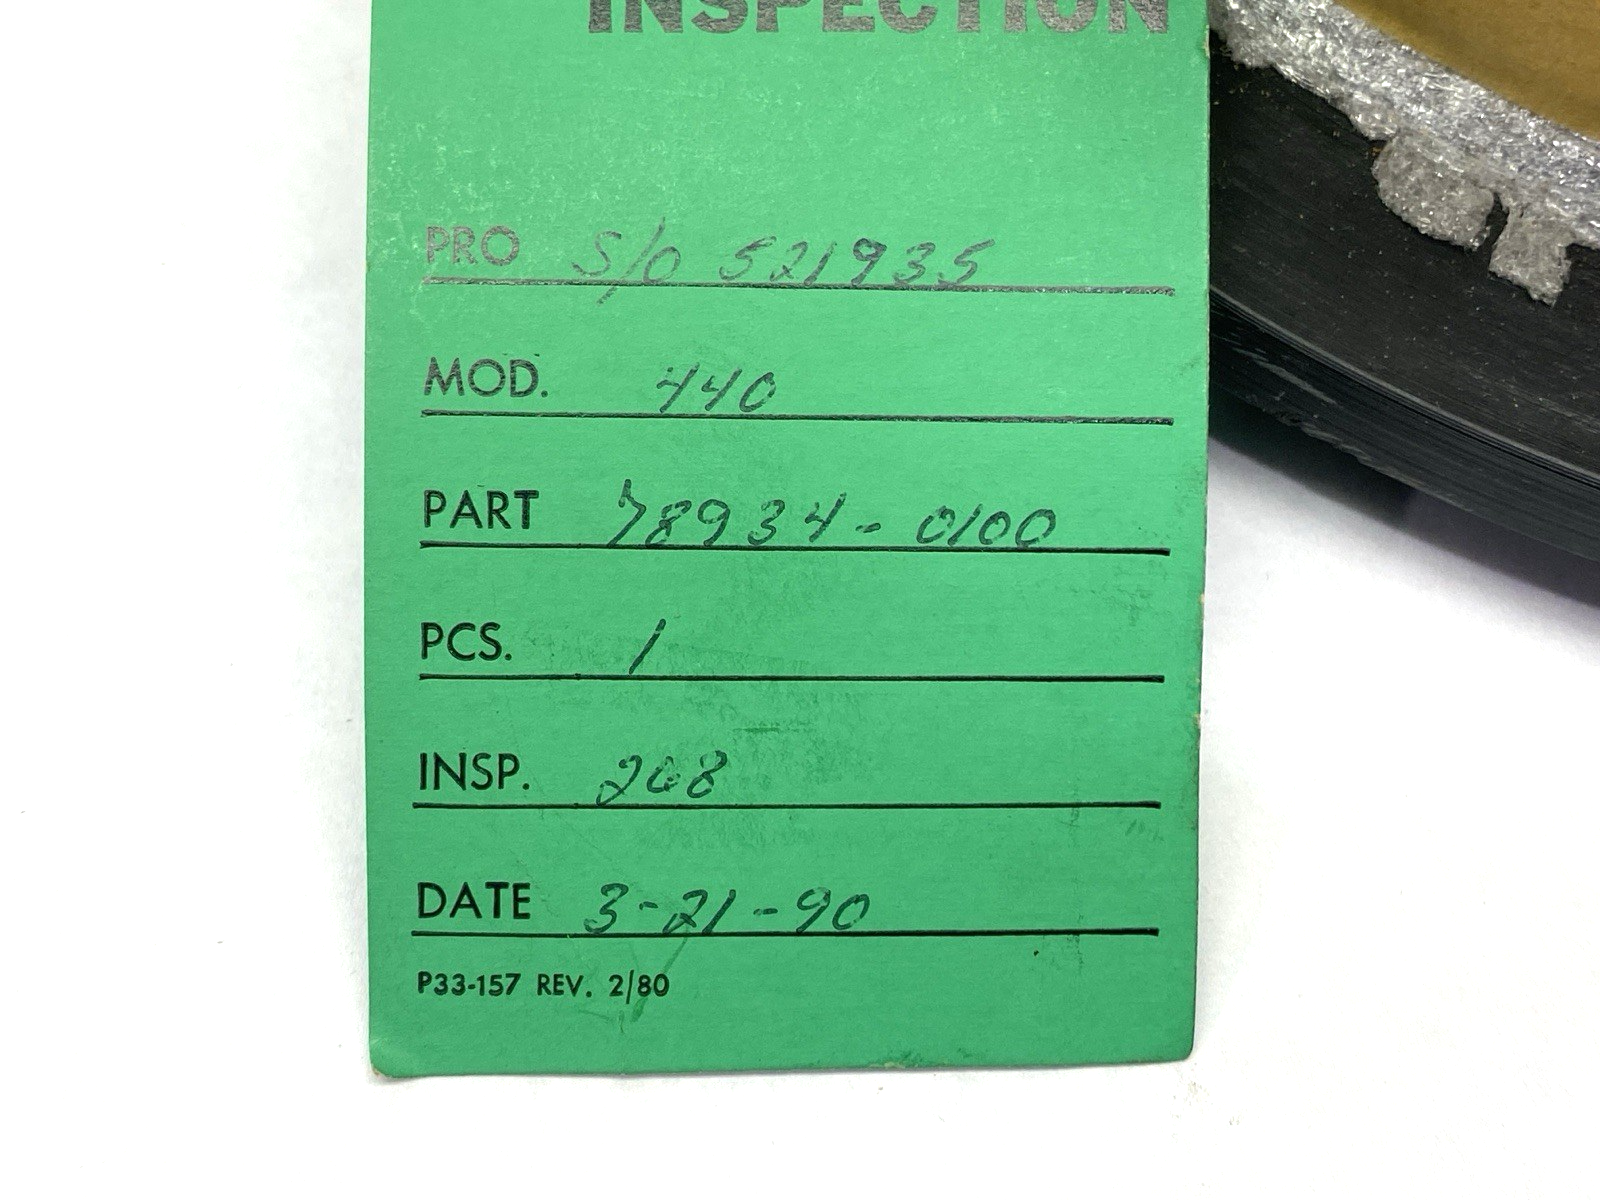 INSPECTION
PRO S/O 521935
MOD. 440
PART 78934-0100
PCS. 1
INSP. 268
DATE 3-21-90
P33-157 REV. 2/80